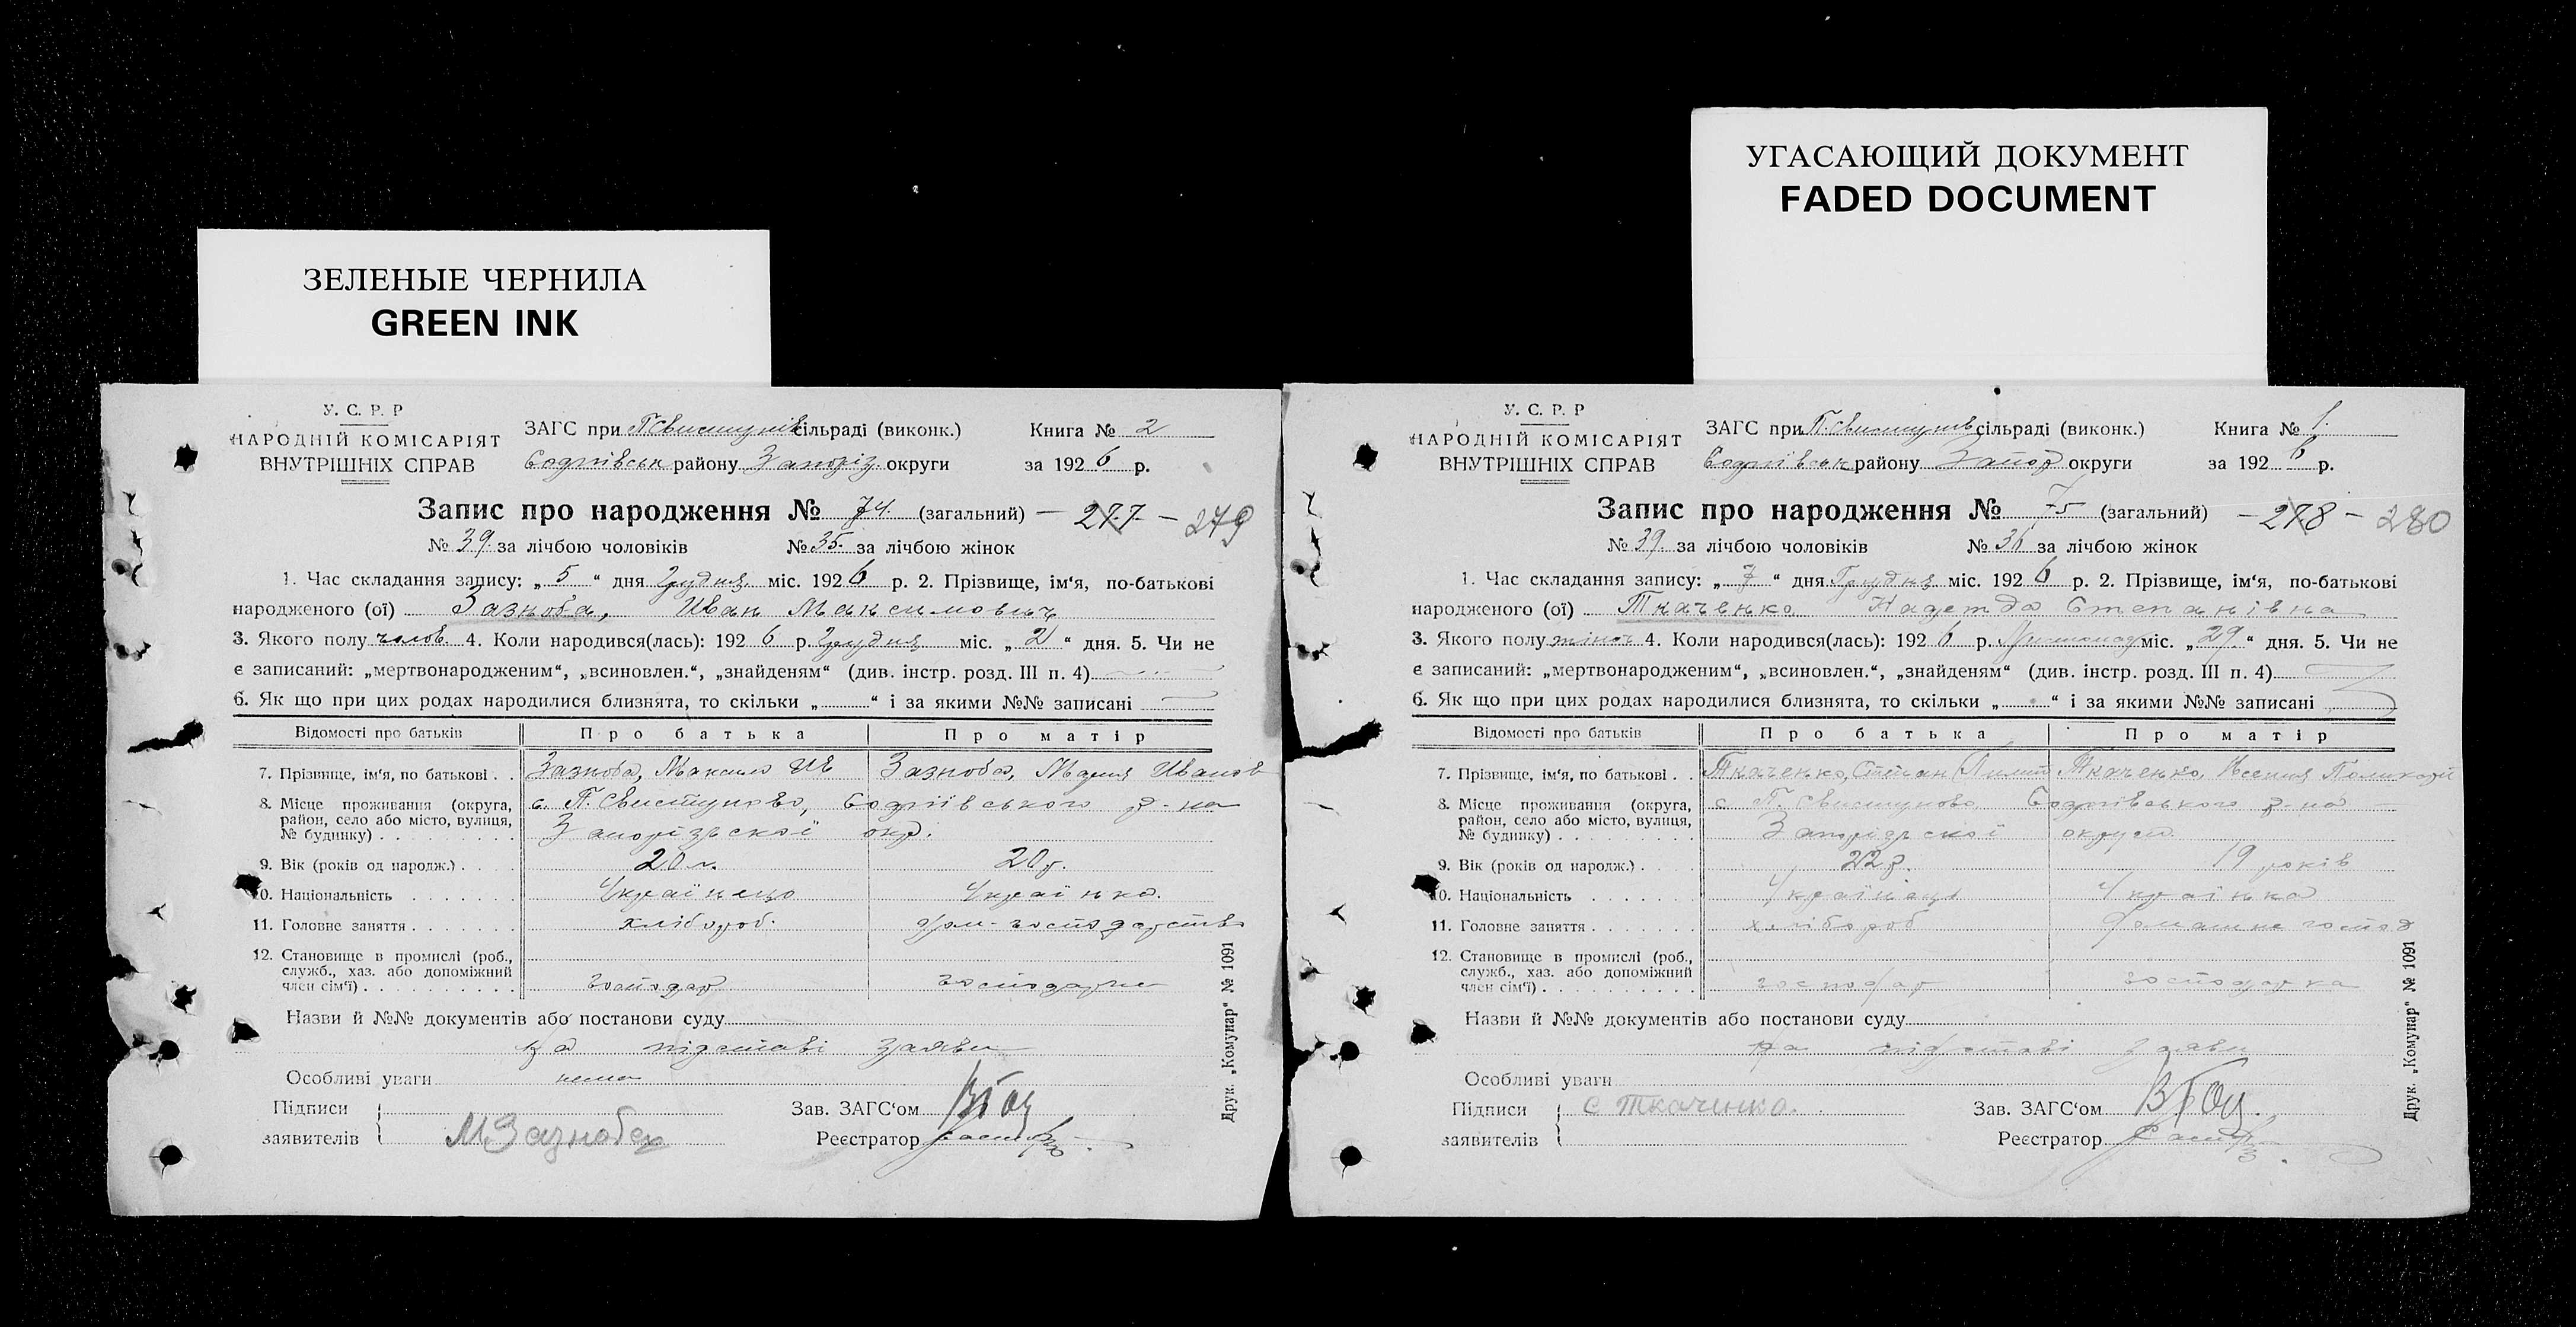 ЗЕЛЕНЫЕ ЧЕРНИЛА
GREEN INK
У. С. Р. Р
НАРОДНІЙ КОМІСАРІЯТ
ВНУТРІШНІХ СПРАВ
ЗАГС при П.Свистунів сільраді (виконк.)
Софіївськ району Запоріз. округи
Книга № 2
за 1926 р.
Запис про народження № 74. (загальний) — 277 — 279
№ 39. за лічбою чоловіків № 35. за лічбою жінок
1. Час складання запису: „ 5 “ дня Грудня міс. 1926 р. 2. Прізвище, ім‘я, по-батькові
народженого (ої) Зазноба, Иван Максимович
3. Якого полу чолов. 4. Коли народився(лась): 1926 р. Грудня міс. „ 2 “ дня. 5. Чи не
є записаний: „мертвонародженим“, „всиновлен.“, „знайденям“ (див. інстр. розд. III п. 4)
6. Як що при цих родах народилися близнята, то скільки „ “ і за якими №№ записані
Відомості про батьків Про батька Про матір
7. Прізвище, ім‘я, по батькові . . Зазноба, Максим Ив Зазноба, Мария Иванов
8. Місце проживання (округа, район, село або місто, вулиця, № будинку) с. П. Свистуново, Софіївського р-на
Запорізської окр.
9. Вік (років од народж.) . . . 20 р. 20 р.
10. Національність Українець Українка.
11. Головне заняття хлібороб. дом-господарство
12. Становище в промислі (роб., служб., хаз. або допоміжний член сім‘ї) господар господарка
Назви й №№ документів або постанови суду
на підставі заяви
Особливі уваги нема
Підписи
заявителів М Зазноба
Зав. ЗАГС‘ом
Реєстратор
Друк. „Комунар“ № 1091
УГАСАЮЩИЙ ДОКУМЕНТ
FADED DOCUMENT
У. С. Р. Р
НАРОДНІЙ КОМІСАРІЯТ
ВНУТРІШНІХ СПРАВ
ЗАГС при П.Свистунів сільраді (виконк.)
Софіївськ району Запор округи
Книга № 1.
за 1926 р.
Запис про народження № 75 (загальний) — 278 — 280
№ 39. за лічбою чоловіків № 36 за лічбою жінок
1. Час складання запису: „ 7 “ дня Грудня міс. 1926 р. 2. Прізвище, ім‘я, по-батькові
народженого (ої) Ткаченко Надежда Степанівна
3. Якого полу жіноч 4. Коли народився(лась): 1926 р. Листопад міс. „ 29. “ дня. 5. Чи не
є записаний: „мертвонародженим“, „всиновлен.“, „знайденям“ (див. інстр. розд. III п. 4)
6. Як що при цих родах народилися близнята, то скільки „ “ і за якими №№ записані
Відомості про батьків Про батька Про матір
7. Прізвище, ім‘я, по батькові . . Ткаченко, Степан Ткаченко, Ксения Поликарп
8. Місце проживання (округа, район, село або місто, вулиця, № будинку) с П. Свистуново Софіївського р-на
Запорізської округи
9. Вік (років од народж.) . . . 22 р. 19 років
10. Національність Українець Українка
11. Головне заняття хлібороб домашне господ
12. Становище в промислі (роб., служб., хаз. або допоміжний член сім‘ї) господар господарка
Назви й №№ документів або постанови суду
на підставі заяви
Особливі уваги
Підписи С Ткаченко.
заявителів
Зав. ЗАГС‘ом
Реєстратор
Друк. „Комунар“ № 1091